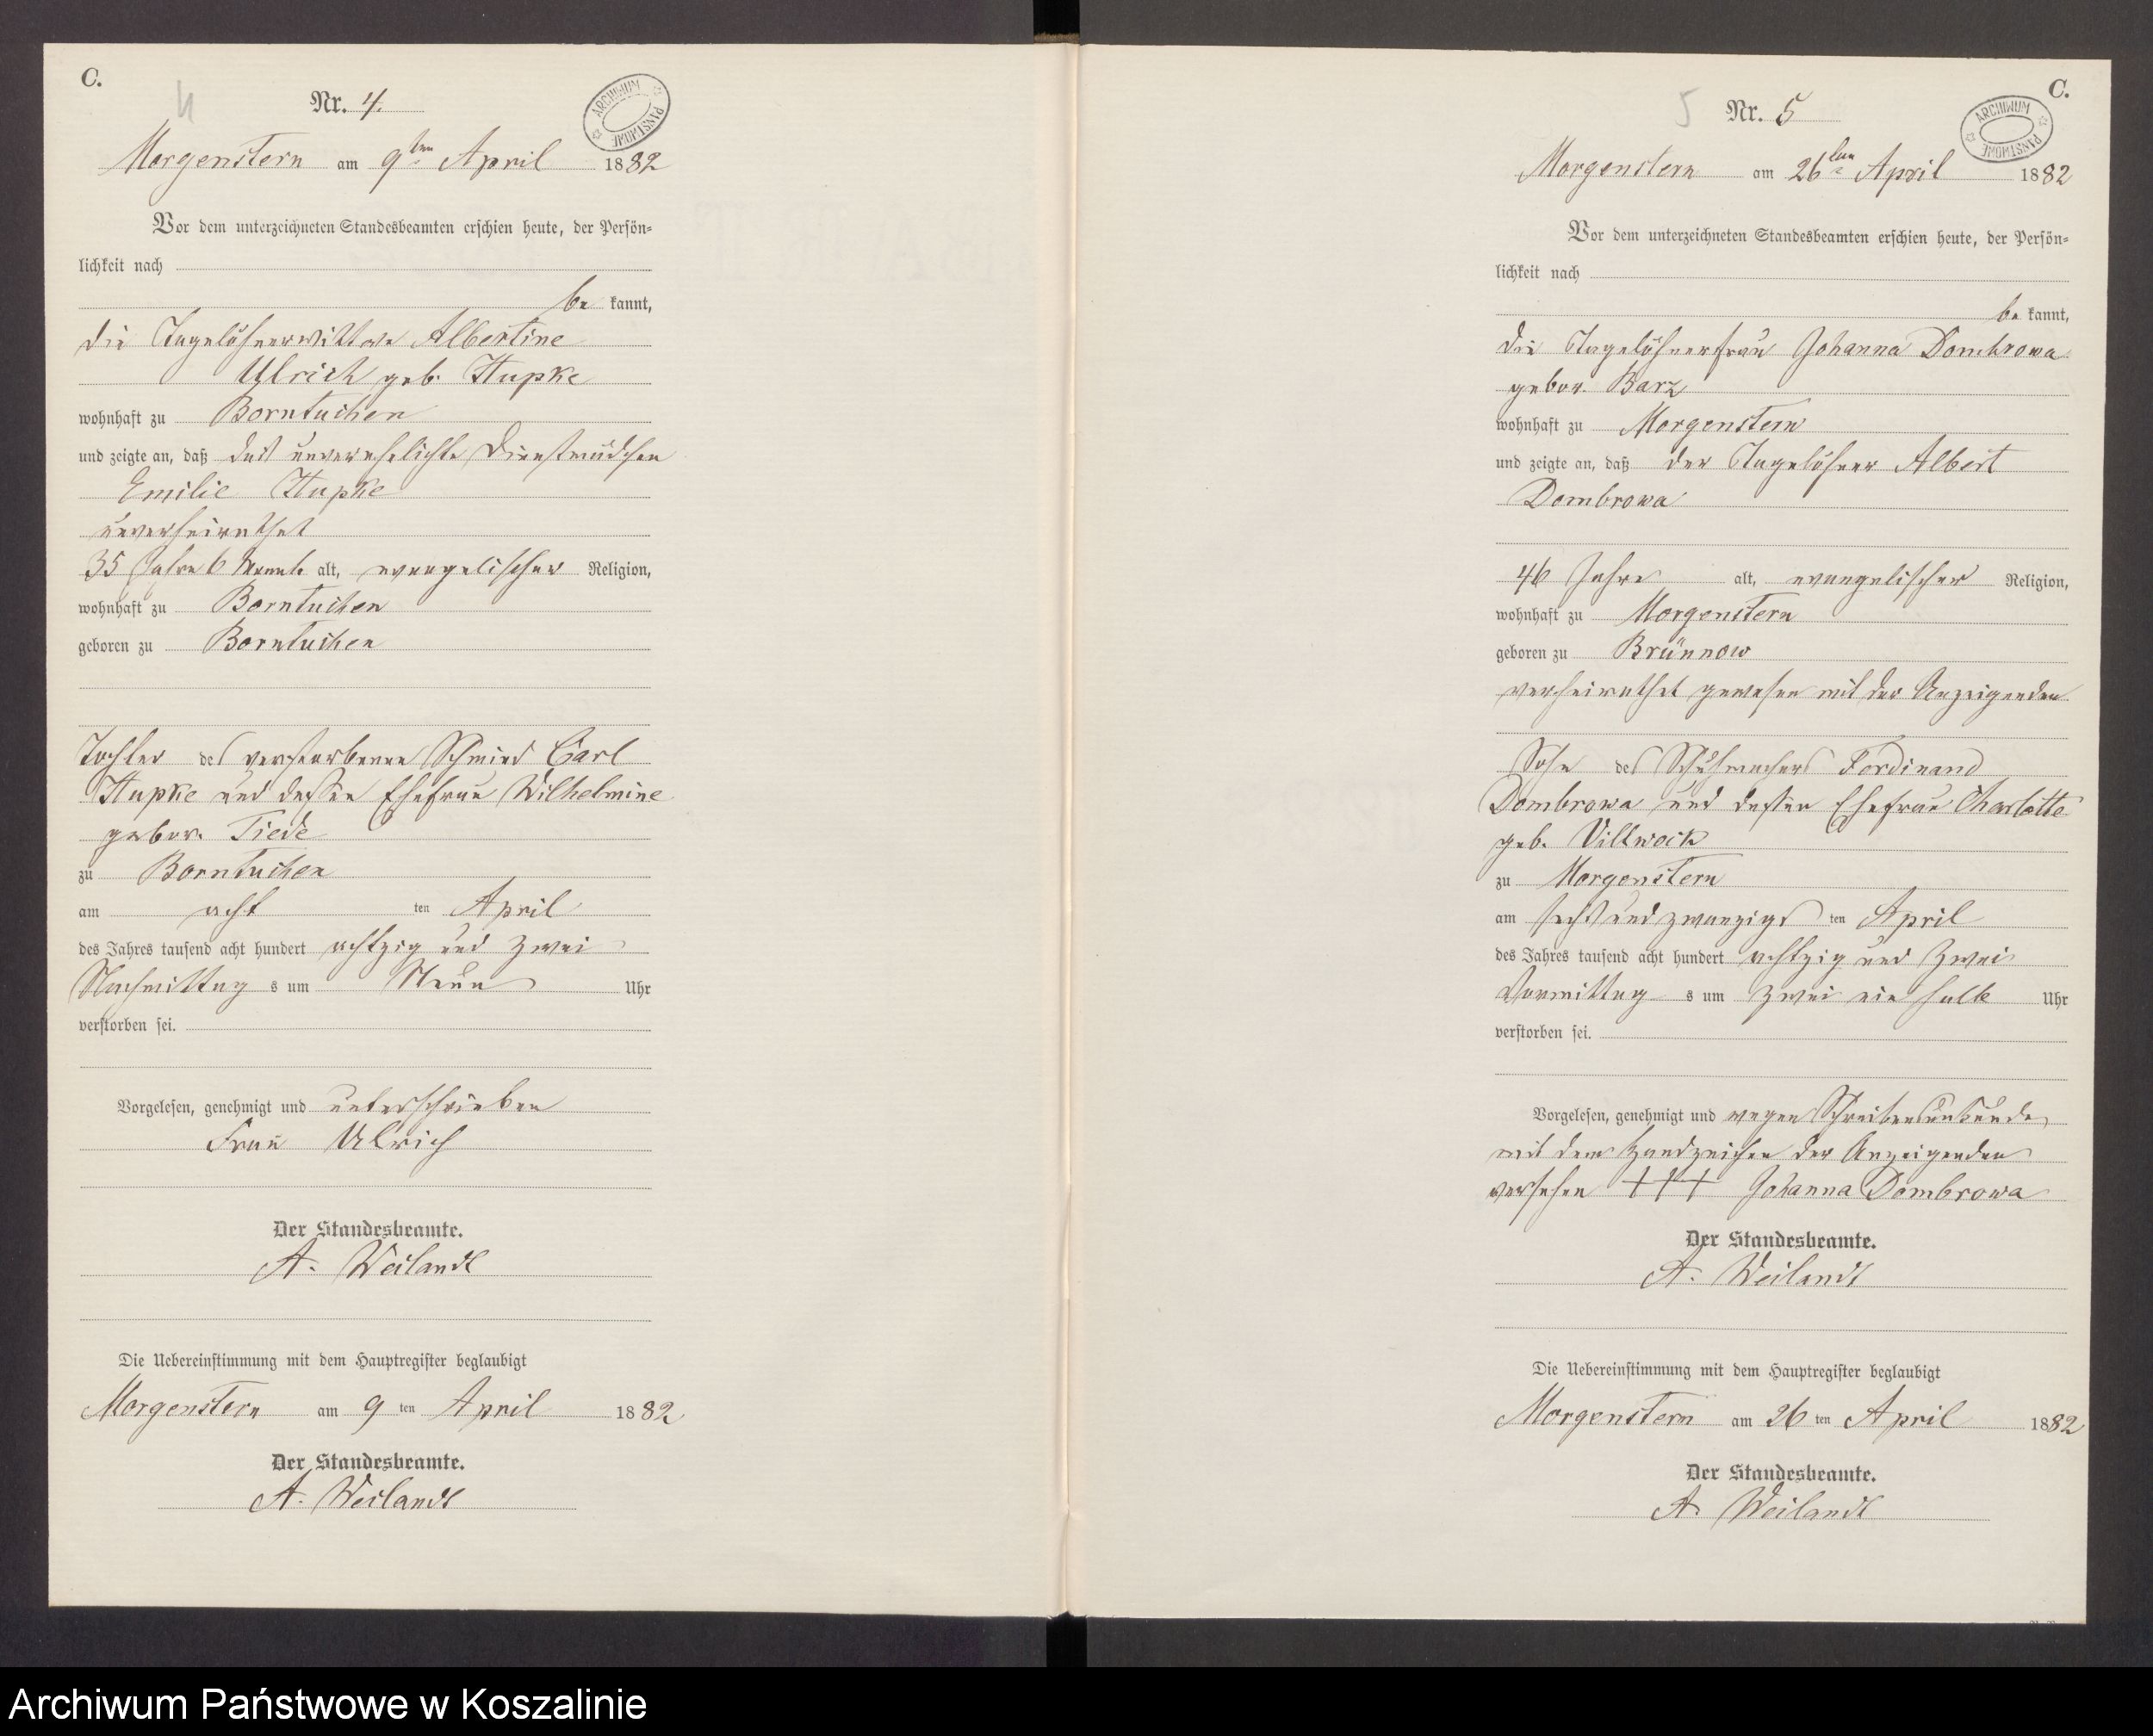 C.
4
Nr. 4.
ARCHIWUM PAŃSTWOWE
Morgenstern am 9ten April 1882
Vor dem unterzeichneten Standesbeamten erschien heute, der Persön-
lichkeit nach
be kannt,
die Tagelöhnerwittwe Albertine
Ulrich geb. Hupke
wohnhaft zu Borntuchen
und zeigte an, daß das unverehelichte Dienstmädchen
Emilie Hupke
unverheirathet
35 Jahre 6 Monate alt, evangelischer Religion,
wohnhaft zu Borntuchen
geboren zu Borntuchen
Tochter des verstorbenen Schmied Carl
Hupke und dessen Ehefrau Wilhelmine
gebor. Tiede
zu Borntuchen
am acht ten April
des Jahres tausend acht hundert achtzig und zwei
Nachmittag s um Neun Uhr
verstorben sei.
Vorgelesen, genehmigt und unterschrieben
Frau Ulrich
Der Standesbeamte.
A. Weilandt
Die Uebereinstimmung mit dem Hauptregister beglaubigt
Morgenstern am 9 ten April 1882
Der Standesbeamte.
A. Weilandt
C.
5
Nr. 5
ARCHIWUM PAŃSTWOWE
Morgenstern am 26ten April 1882
Vor dem unterzeichneten Standesbeamten erschien heute, der Persön-
lichkeit nach
be kannt,
die Tagelöhnerfrau Johanna Dombrowa
gebor. Barz
wohnhaft zu Morgenstern
und zeigte an, daß der Tagelöhner Albert
Dombrowa
46 Jahre alt, evangelischer Religion,
wohnhaft zu Morgenstern
geboren zu Brünnow
verheirathet gewesen mit der Anzeigenden
Sohn des Schuhmachers Ferdinand
Dombrowa und dessen Ehefrau Charlotte
geb. Villwock
zu Morgenstern
am sechs und zwanzigs ten April
des Jahres tausend acht hundert achtzig und zwei
Vormittag s um zwei ein halb Uhr
verstorben sei.
Vorgelesen, genehmigt und wegen Schreibensunkunde
mit dem Handzeichen der Anzeigenden
versehen +++ Johanna Dombrowa
Der Standesbeamte.
A. Weilandt
Die Uebereinstimmung mit dem Hauptregister beglaubigt
Morgenstern am 26 ten April 1882
Der Standesbeamte.
A. Weilandt
Archiwum Państwowe w Koszalinie